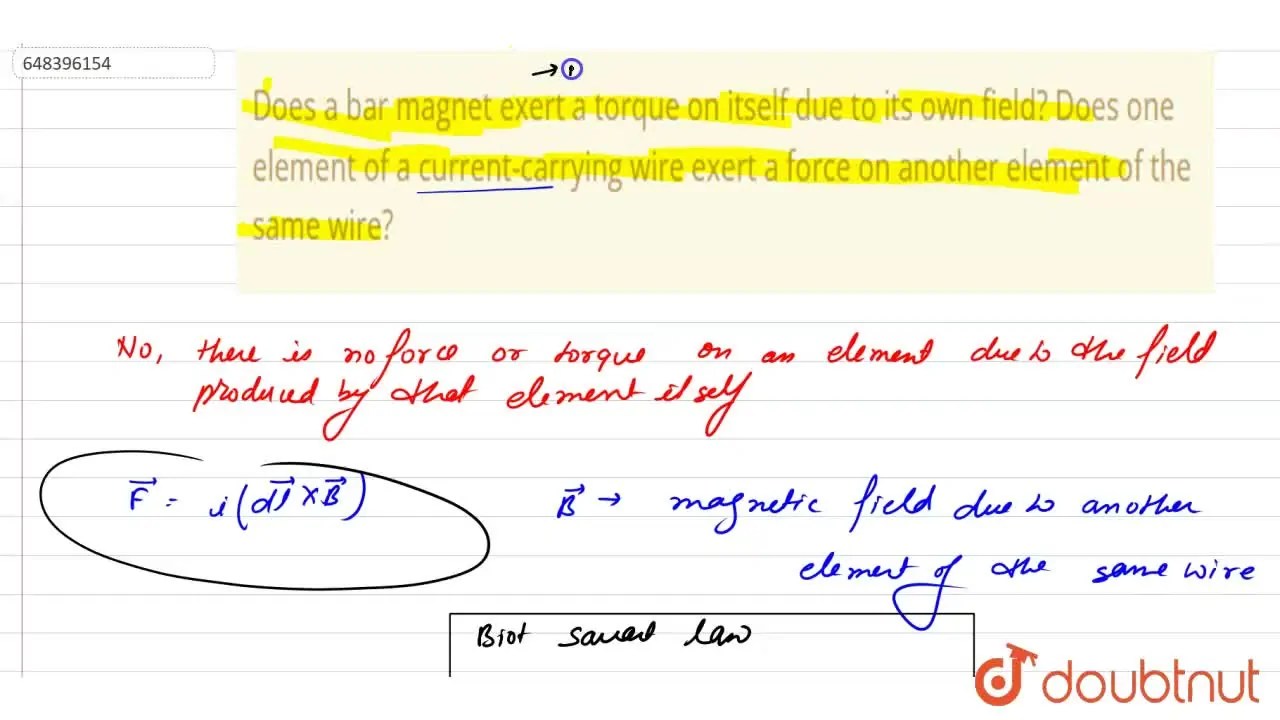 648396154
→ (1)
Does a bar magnet exert a torque on itself due to its own field? Does one
element of a current-carrying wire exert a force on another element of the
same wire?
No, there is no force or torque on an element due to the field
produced by that element itself
F⃗ = i(dl⃗ × B⃗)
B⃗ → magnetic field due to another
element of the same wire
Biot savart law
doubtnut